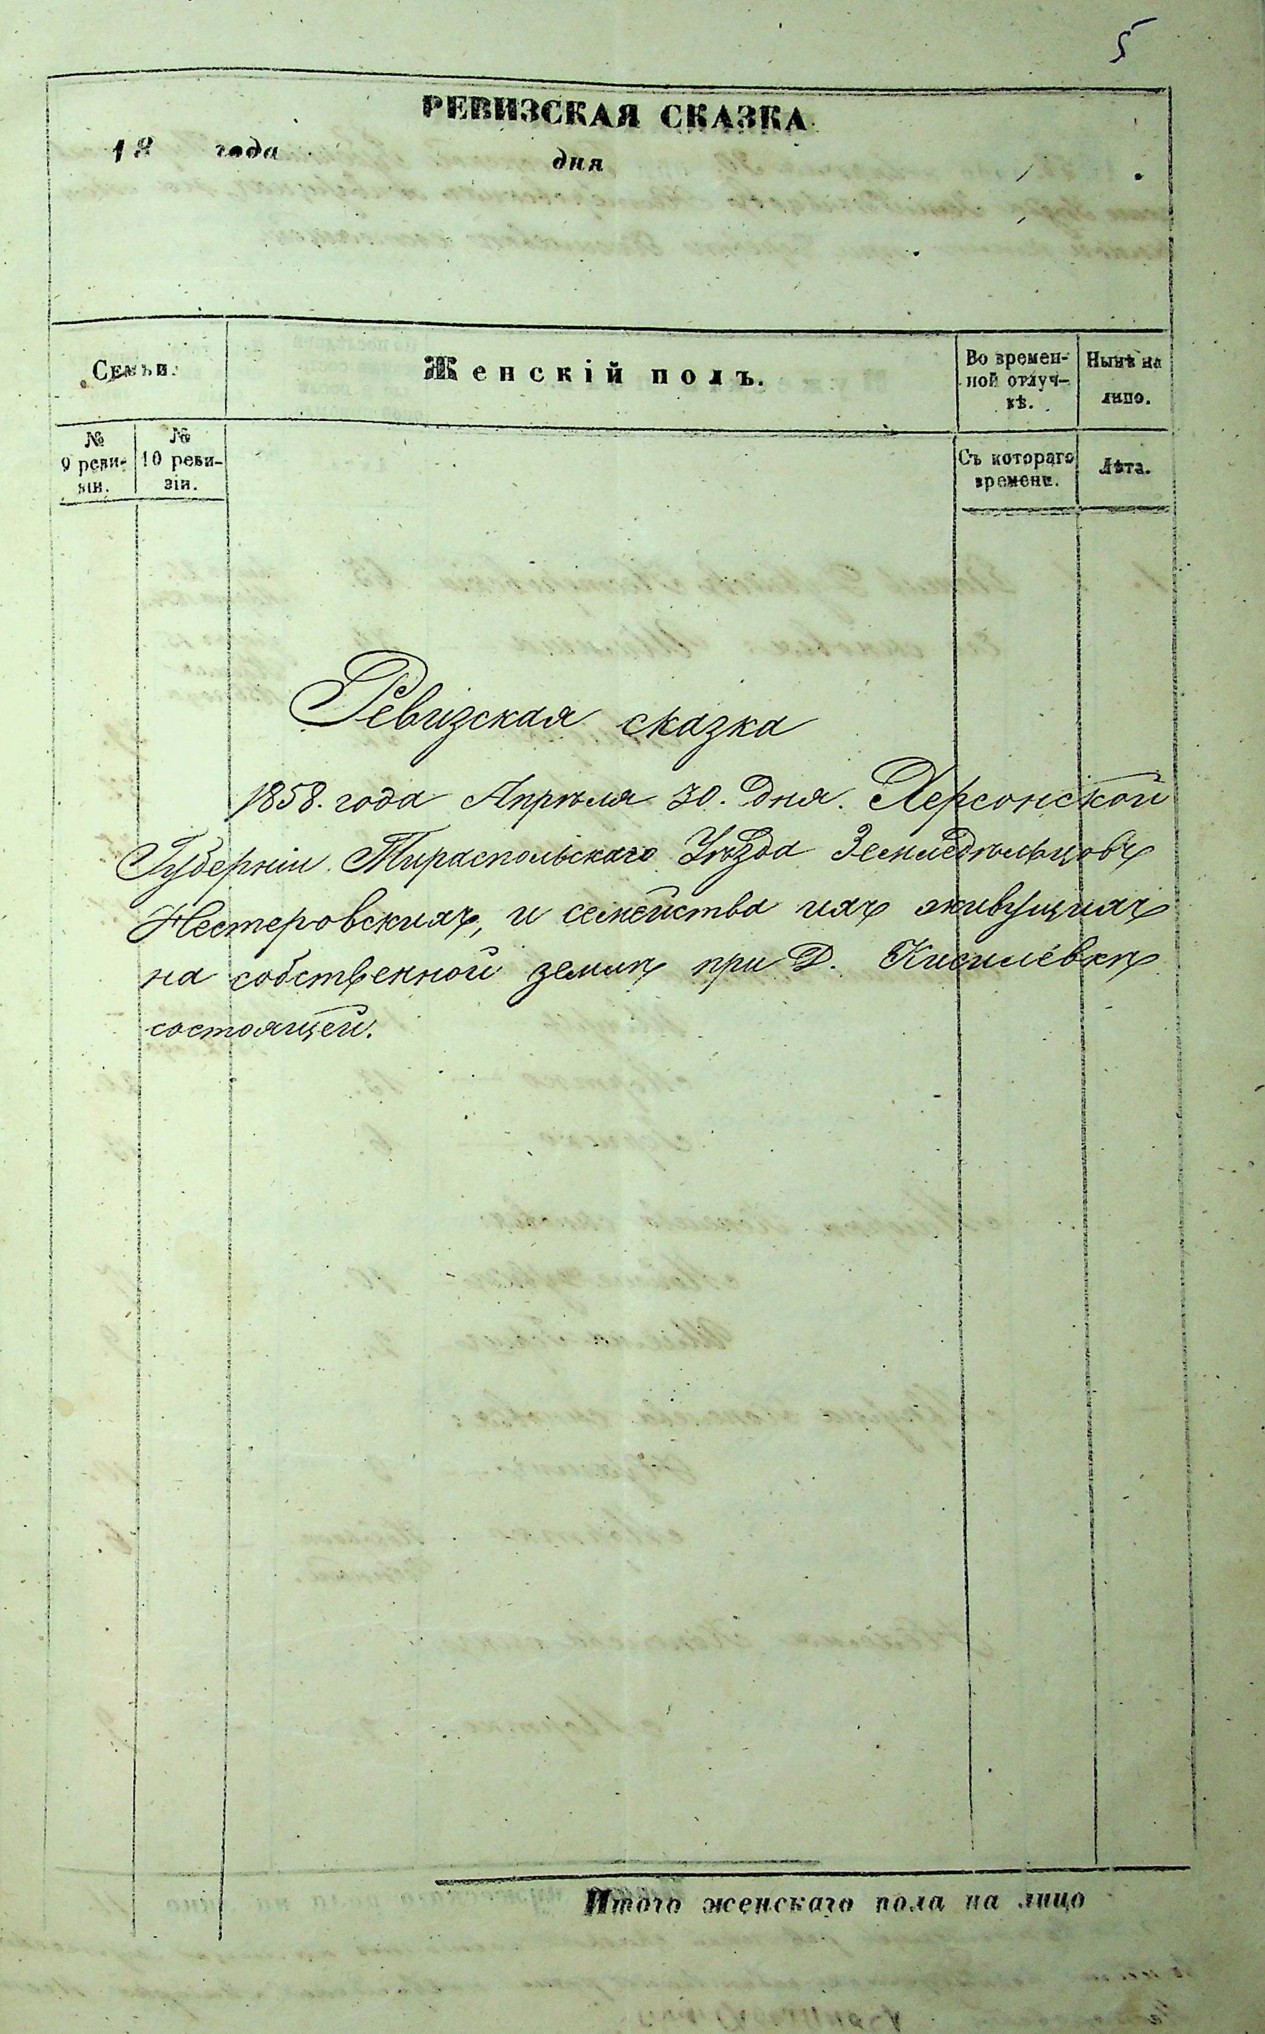 5
РЕВИЗСКАЯ СКАЗКА
18 года дня
Семьи.
Женскій полъ.
Во времен-
ной отлуч-
кѣ.
Нынѣ на
лицо.
№
9 реви-
зіи.
№
10 реви-
зіи.
Съ котораго
времени.
Лѣта.
Ревизская сказка
1858. года Апрѣля 30. Дня. Херсонской
Губерніи Тираспольскаго Уѣзда Земледѣльцовъ
Нестеровскихъ, и семейства ихъ живущихъ
на собственной землѣ при Д. Кисилёвкѣ
состоящей.
Итого женскаго пола на лицо